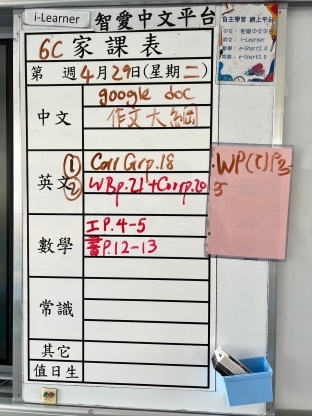 i-Learner 智愛中文平台
6C 家課表
第 週 4月29日(星期二)
中文
google doc
作文大綱
英文
① Corr Grp.18
② WBp.21+Corrp.20
WP(t)P.35
數學
工P.4-5
書P.12-13
常識
其它
值日生
自主學習 網上平台
中文: 智愛中文平台
英文: i-Learner
數學: e-Smart2.0
常識: e-Smart2.0